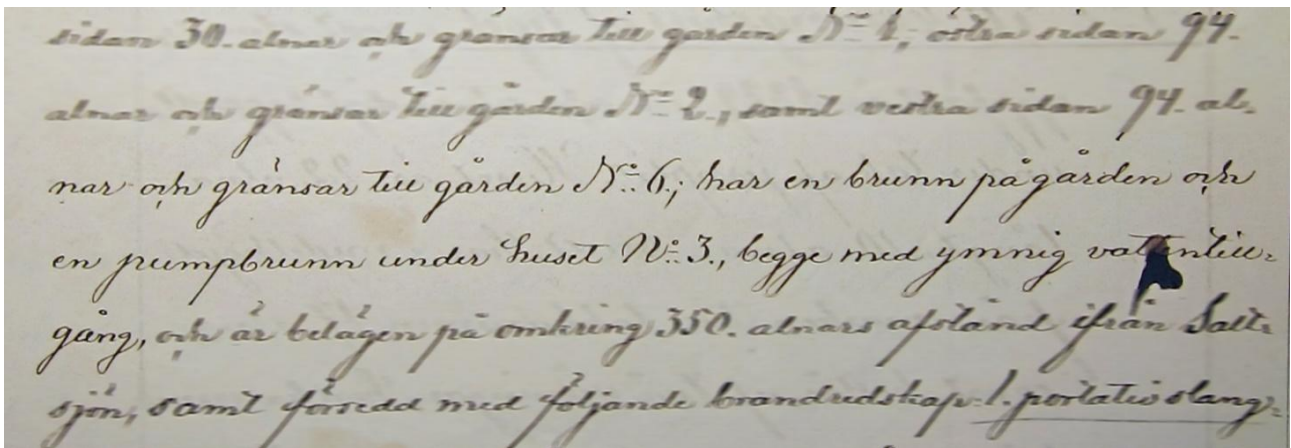 sidan 30. alnar och gränsar till gården N:o 1; östra sidan 94.
alnar och gränsar till gården N:o 2., samt vestra sidan 94. al-
nar och gränsar till gården N:o 6.; har en brunn på gården och
en pumpbrunn under huset N:o 3., begge med ymnig vattentill-
gång, och är belägen på omkring 350. alnars afstånd ifrån Salt-
sjön, samt försedd med följande brandredskap: 1. portativ slang-